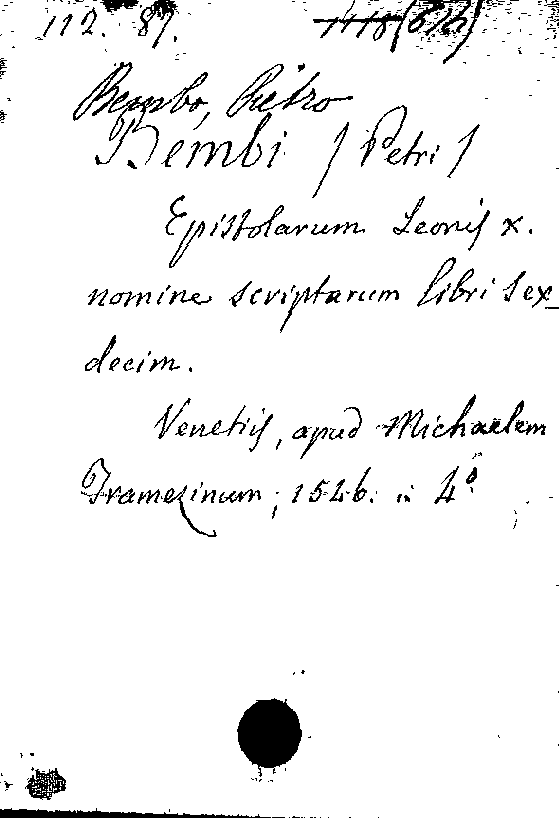 112. 87.
Bembo, Pietro
Bembi / Petri /
Epistolarum Leonis X.
nomine scriptarum libri sex_
decim.
Venetiis, apud Michaelem
Tramezinum, 1546. in 4º